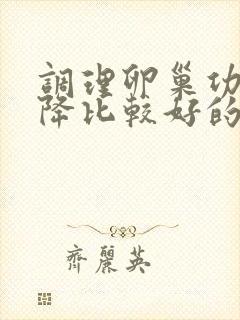 調理卵巢功
降比較好的
齊麗英